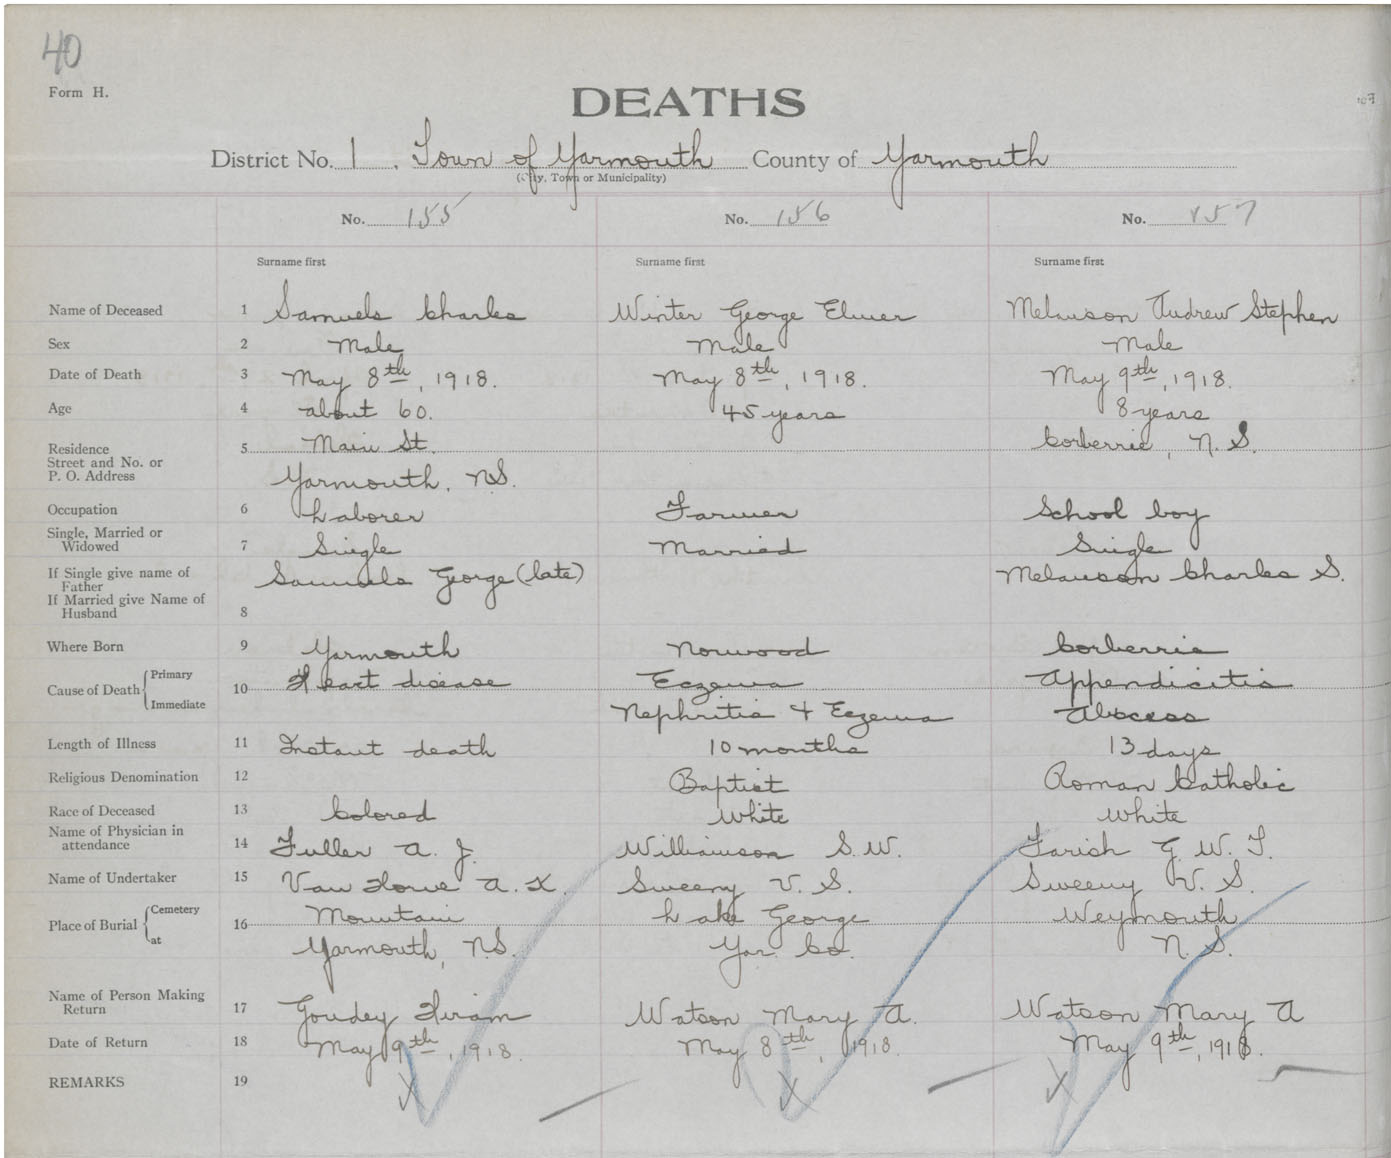 40
Form H.
DEATHS
107
District No. 1. Town of Yarmouth County of Yarmouth
(City, Town or Municipality)
No. 155 No. 156 No. 157
Surname first Surname first Surname first
Name of Deceased 1 Samuels Charles Winter George Elmer Melanson Andrew Stephen
Sex 2 Male Male Male
Date of Death 3 May 8th, 1918. May 8th, 1918. May 9th, 1918.
Age 4 about 60. 45 years 8 years
Residence 5 Main St. Corberrie, N.S.
Street and No. or
P. O. Address Yarmouth, N.S.
Occupation 6 Laborer Farmer School boy
Single, Married or
Widowed 7 Single Married Single
If Single give name of
Father Samuels George (late) Melanson Charles S.
If Married give Name of
Husband 8
Where Born 9 Yarmouth Norwood Corberrie
Cause of Death Primary 10 Heart disease Eczema Appendicitis
Immediate Nephritis & Eczema Abscess
Length of Illness 11 Instant death 10 months 13 days
Religious Denomination 12 Baptist Roman Catholic
Race of Deceased 13 Colored White White
Name of Physician in
attendance 14 Fuller A. J. Williamson S. W. Farish G. W. T.
Name of Undertaker 15 Van Horne A. K. Sweeny V. S. Sweeny V. S.
Place of Burial Cemetery 16 Mountain Lake George Weymouth
at Yarmouth, N.S. Yar. Co. N. S.
Name of Person Making
Return 17 Goudey Hiram Watson Mary A. Watson Mary A
Date of Return 18 May 9th, 1918. May 8th, 1918. May 9th, 1918.
REMARKS 19 X X X